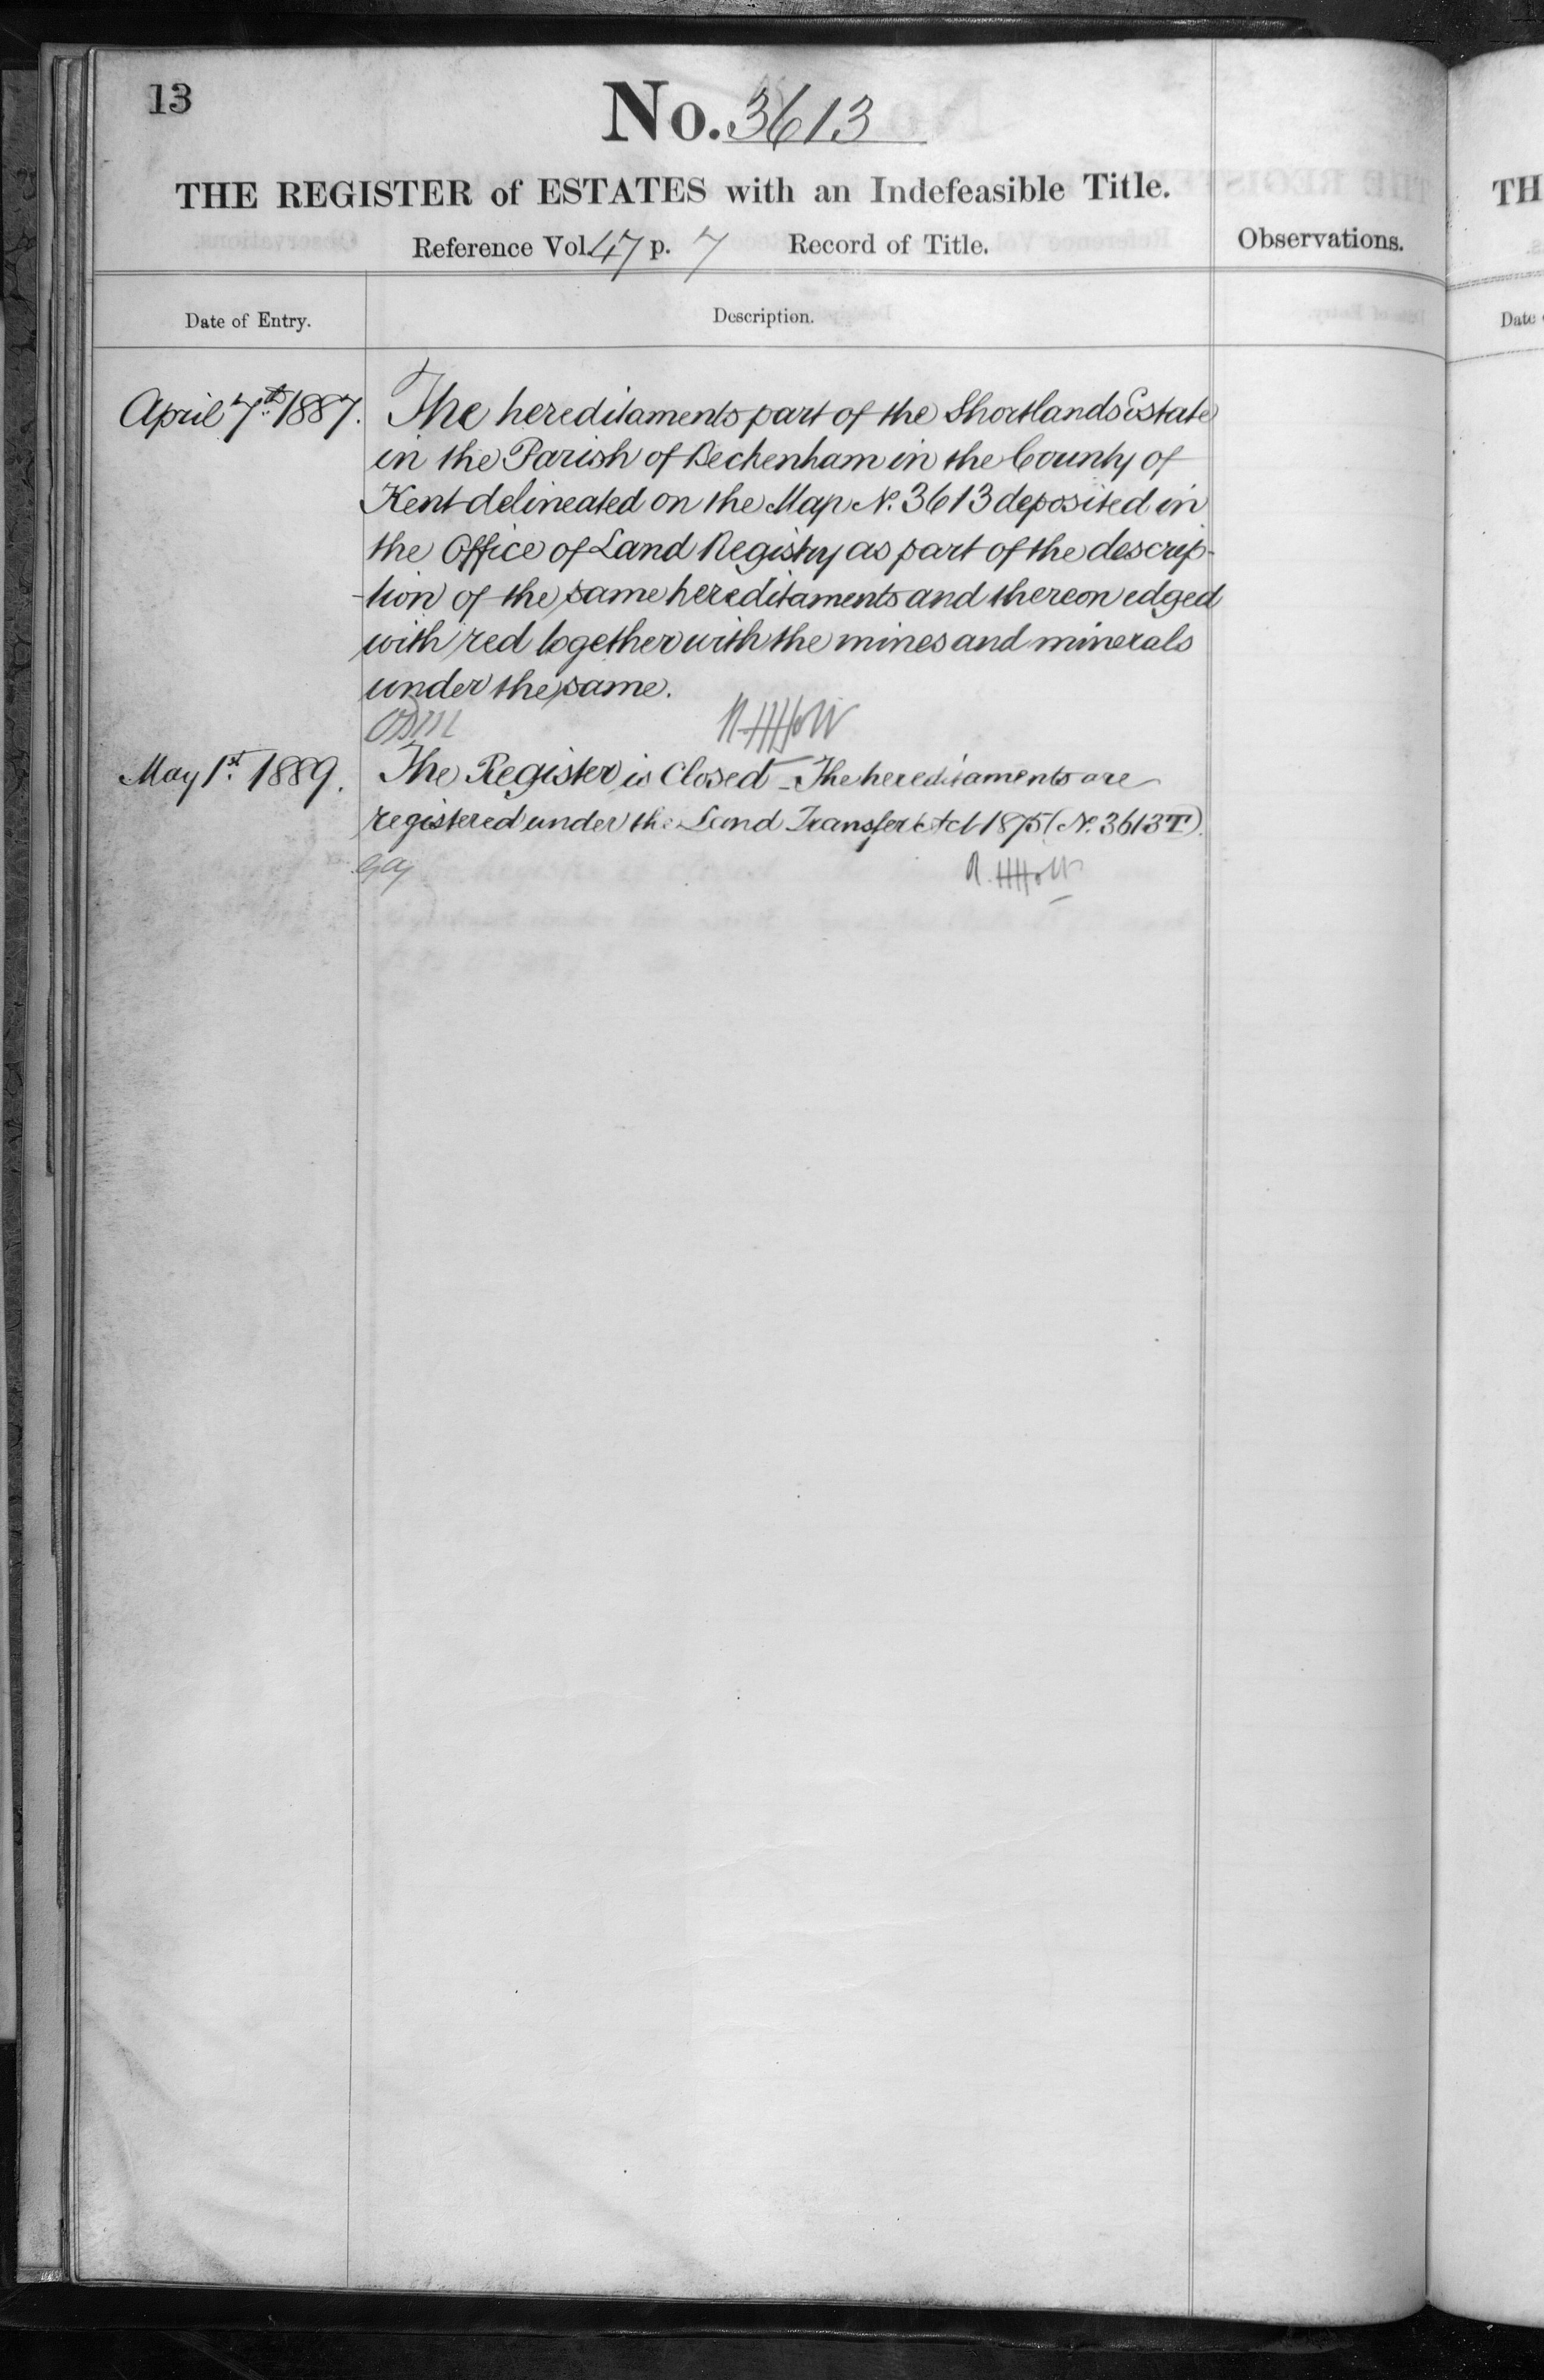 13
No. 3613
THE REGISTER of ESTATES with an Indefeasible Title.
Reference Vol. 47 p. 7 Record of Title.
Observations.
Date of Entry.
Description.
April 7th 1887.
The hereditaments part of the Shortlands Estate
in the Parish of Beckenham in the County of
Kent delineated on the Map No. 3613 deposited in
the Office of Land Registry as part of the descrip-
-tion of the same hereditaments and thereon edged
with red together with the mines and minerals
under the same.
R H Holt
May 1st 1889.
The Register is Closed - The hereditaments are
registered under the Land Transfer Act 1875 (No. 3613T).
R. H Holt
TH
Date